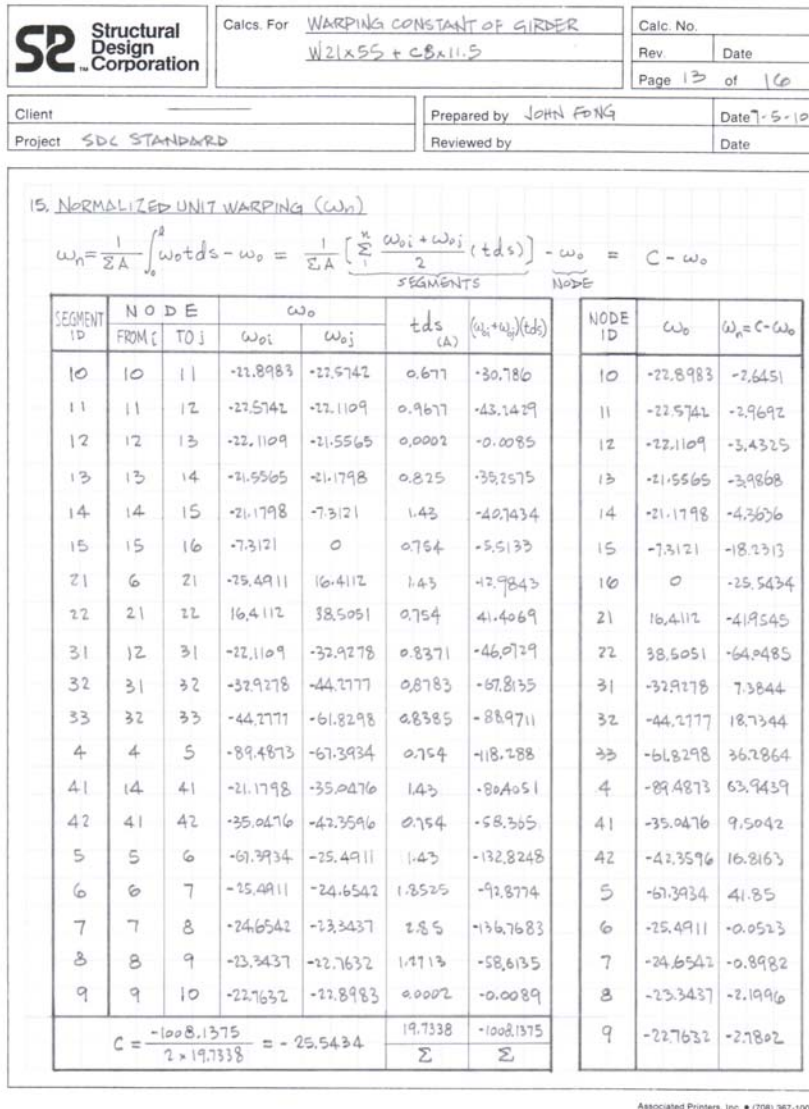 SD Structural
Design
Corporation
Calcs. For WARPING CONSTANT OF GIRDER
W21x55 + C8x11.5
Calc. No.
Rev. Date
Page 13 of 16
Client
Prepared by JOHN FONG Date 7-5-10
Project SDC STANDARD
Reviewed by Date
15. NORMALIZED UNIT WARPING (ωn)
ωn = 1/ΣA ∫₀ˡ ω₀tds - ω₀ = 1/ΣA [Σ₁ⁿ (ω₀i + ω₀j)/2 (tds)] - ω₀ = C - ω₀
SEGMENTS NODE
SEGMENT ID NODE ω₀ tds (A) (ω₀i+ω₀j)(tds)
FROM i TO j ω₀i ω₀j
10 10 11 -22.8983 -22.5742 0.677 -30.786
11 11 12 -22.5742 -22.1109 0.9677 -43.2429
12 12 13 -22.1109 -21.5565 0.0002 -0.0085
13 13 14 -21.5565 -21.1798 0.825 -35.2575
14 14 15 -21.1798 -7.3121 1.43 -40.7434
15 15 16 -7.3121 0 0.754 -5.5133
21 6 21 -25.4911 16.4112 1.43 -12.9843
22 21 22 16.4112 38.5051 0.754 41.4069
31 12 31 -22.1109 -32.9278 0.8371 -46.0729
32 31 32 -32.9278 -44.2777 0.8783 -67.8135
33 32 33 -44.2777 -61.8298 0.8385 -88.9711
4 4 5 -89.4873 -67.3934 0.754 -118.288
41 14 41 -21.1798 -35.0476 1.43 -80.4051
42 41 42 -35.0476 -42.3596 0.754 -58.365
5 5 6 -67.3934 -25.4911 1.43 -132.8248
6 6 7 -25.4911 -24.6542 1.8525 -92.8774
7 7 8 -24.6542 -23.3437 2.85 -136.7683
8 8 9 -23.3437 -22.7632 1.2713 -58.6135
9 9 10 -22.7632 -22.8983 0.0002 -0.0089
C = -1008.1375 / 2 x 19.7338 = -25.5434 19.7338 Σ -1008.1375 Σ
NODE ID ω₀ ωn = C-ω₀
10 -22.8983 -2.6451
11 -22.5742 -2.9692
12 -22.1109 -3.4325
13 -21.5565 -3.9868
14 -21.1798 -4.3636
15 -7.3121 -18.2313
16 0 -25.5434
21 16.4112 -41.9545
22 38.5051 -64.0485
31 -32.9278 7.3844
32 -44.2777 18.7344
33 -61.8298 36.2864
4 -89.4873 63.9439
41 -35.0476 9.5042
42 -42.3596 16.8163
5 -67.3934 41.85
6 -25.4911 -0.0523
7 -24.6542 -0.8982
8 -23.3437 -2.1996
9 -22.7632 -2.7802
Associated Printers, Inc. • (708) 367-100